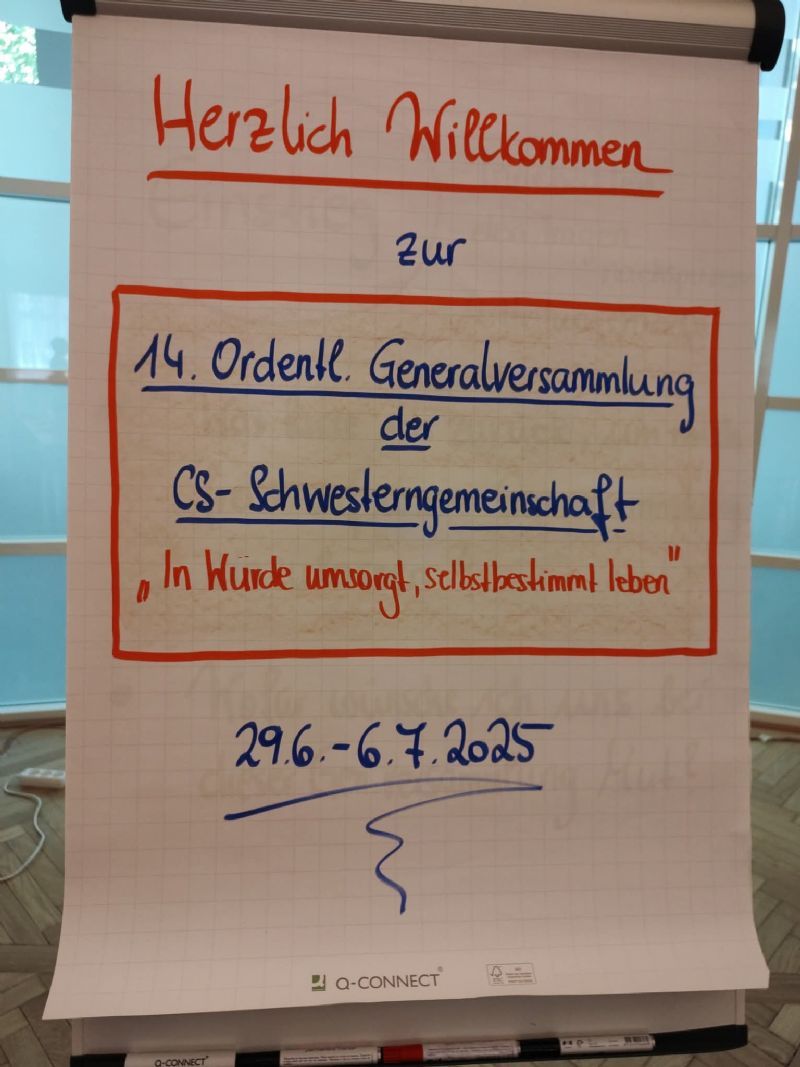 Herzlich Willkommen
zur
14. Ordentl. Generalversammlung
der
CS-Schwesterngemeinschaft
„In Würde umsorgt, selbstbestimmt leben"
29.6.-6.7.2025
Q-CONNECT®
FSC
Q-CONNECT®